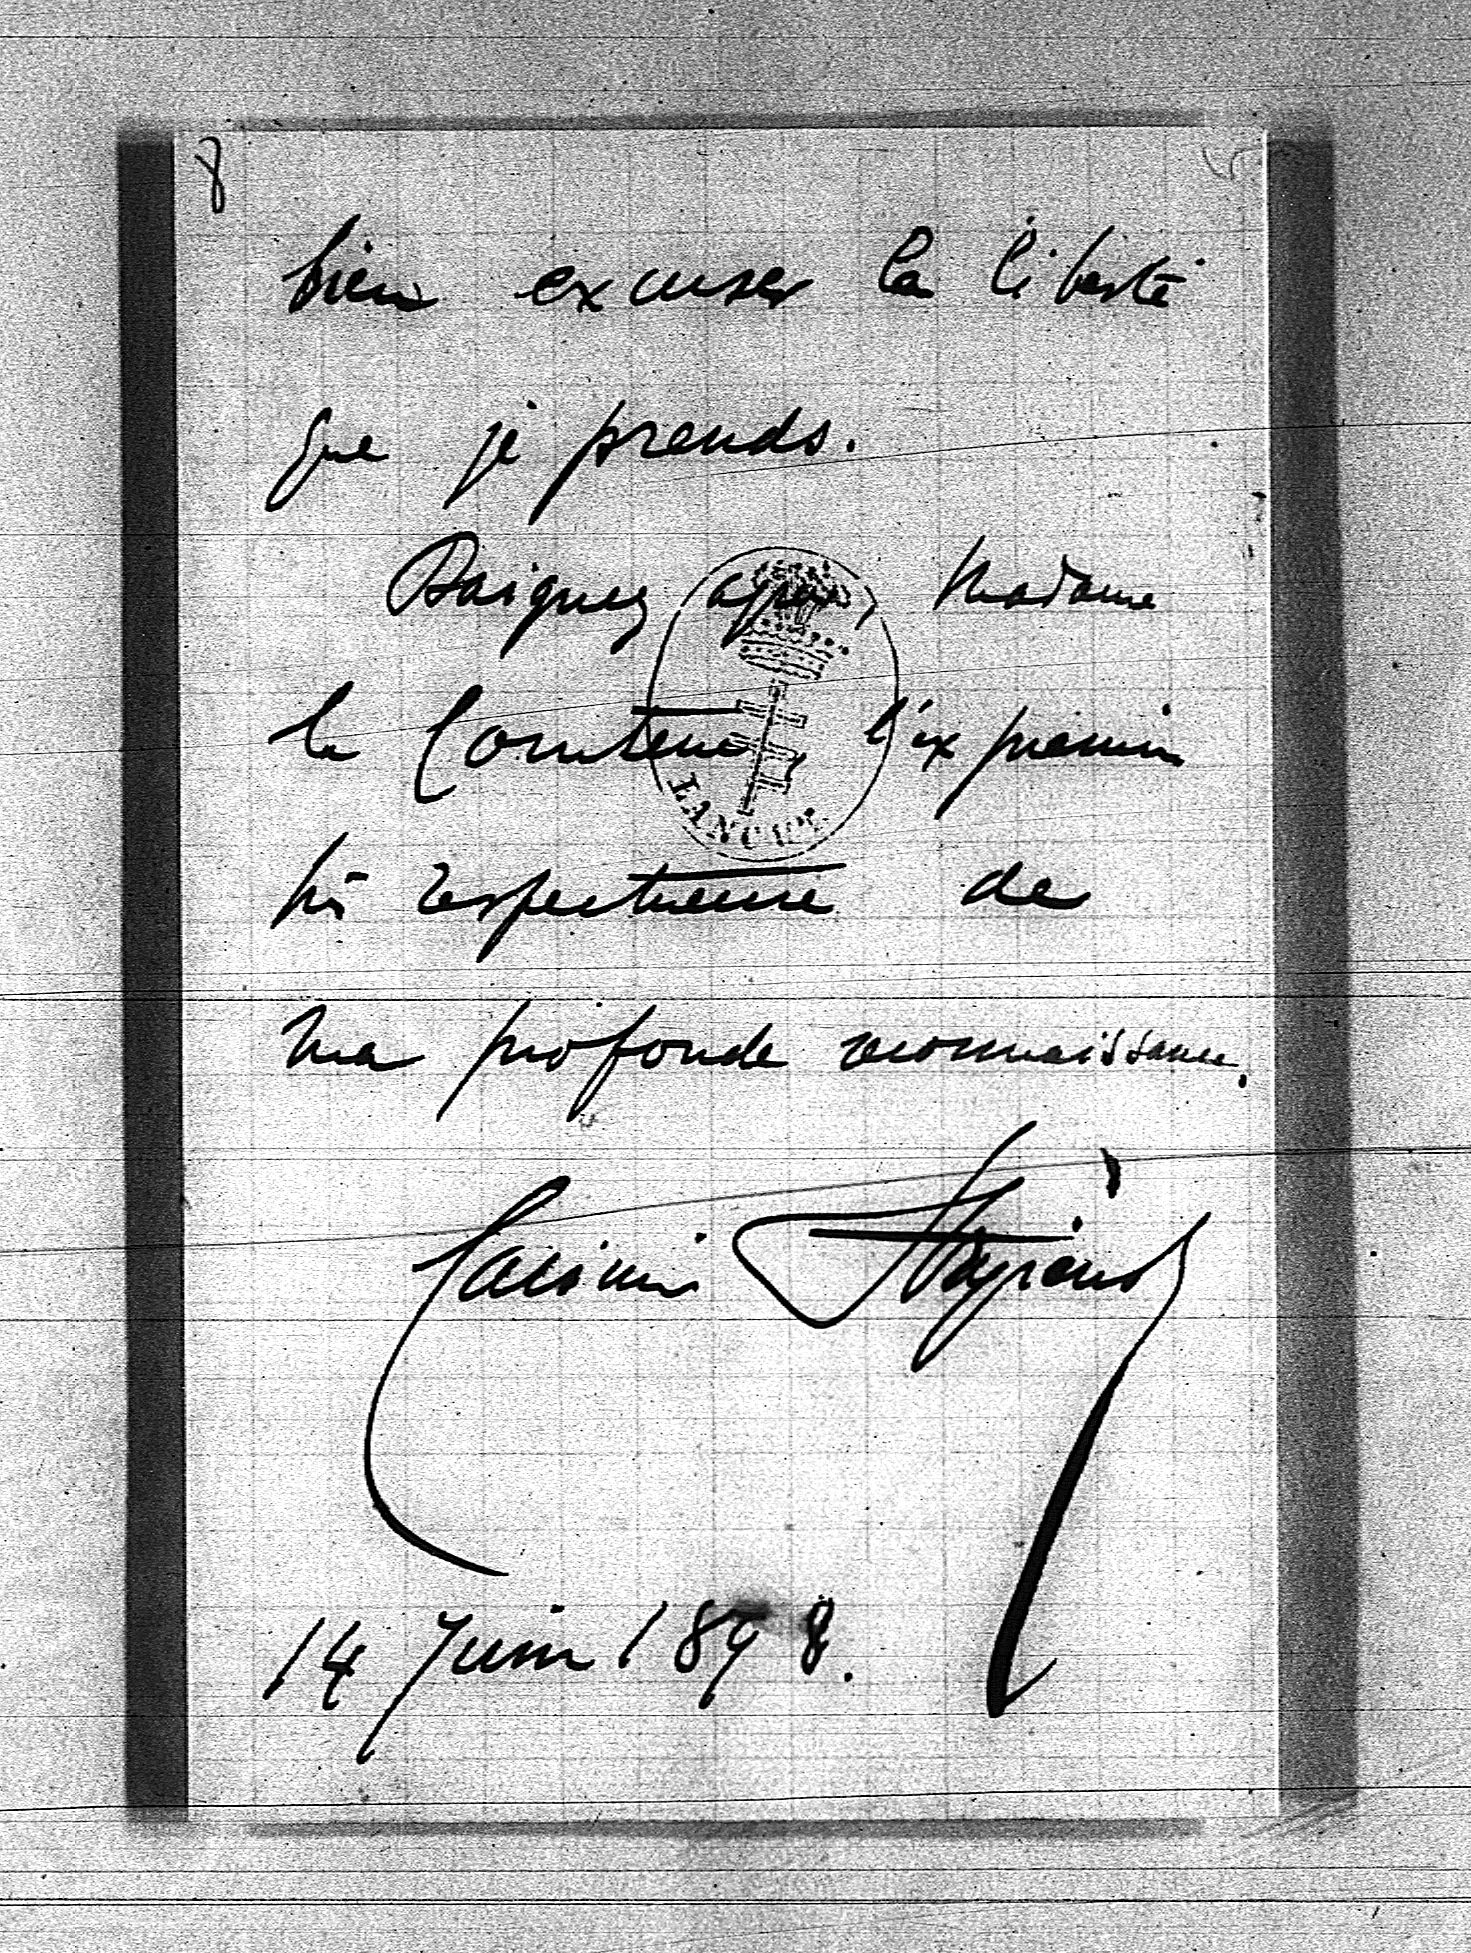 8
bien excuser la liberté
que je prends.
Daignez agréer, Madame
la Comtesse, l'expression
très respectueuse de
ma profonde reconnaissance.
Casimir Stryienski
14 Juin 1898.